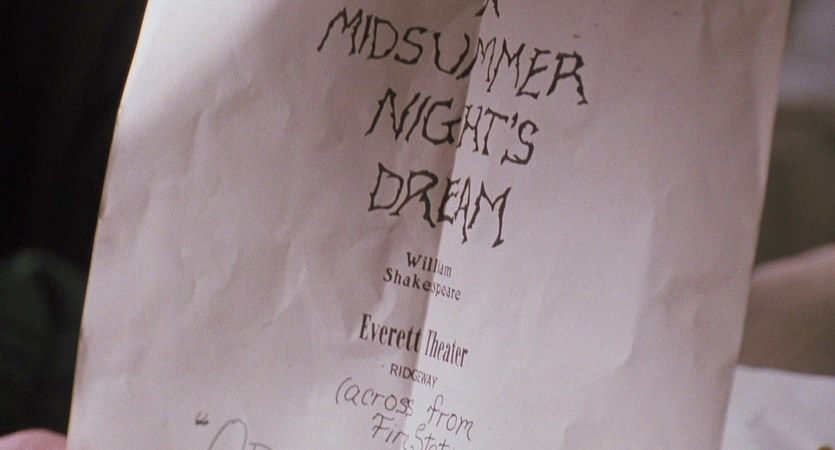 A
MIDSUMMER
NIGHT'S
DREAM
William
Shakespeare
Everett Theater
RIDGEWAY
(across from